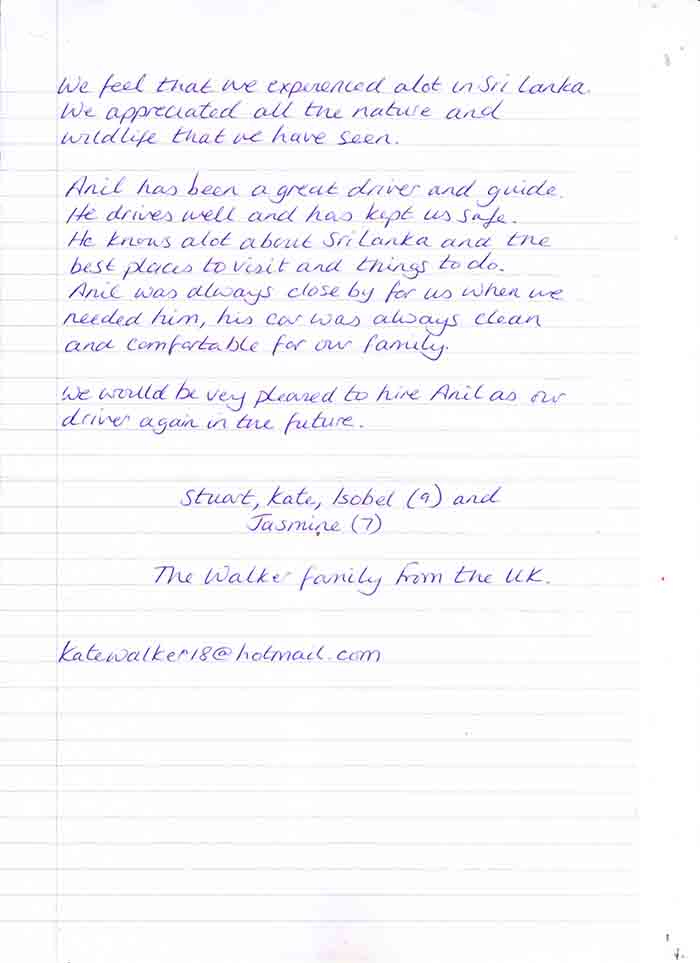 We feel that we experienced alot in Sri Lanka.
We appreciated all the nature and
wildlife that we have seen.
Anil has been a great driver and guide.
He drives well and has kept us safe.
He knows alot about Sri Lanka and the
best places to visit and things to do.
Anil was always close by for us when we
needed him, his car was always clean
and comfortable for our family.
We would be very pleased to hire Anil as our
driver again in the future.
Stuart, Kate, Isobel (9) and
Jasmine (7)
The Walker family from the UK.
katewalker18@hotmail.com